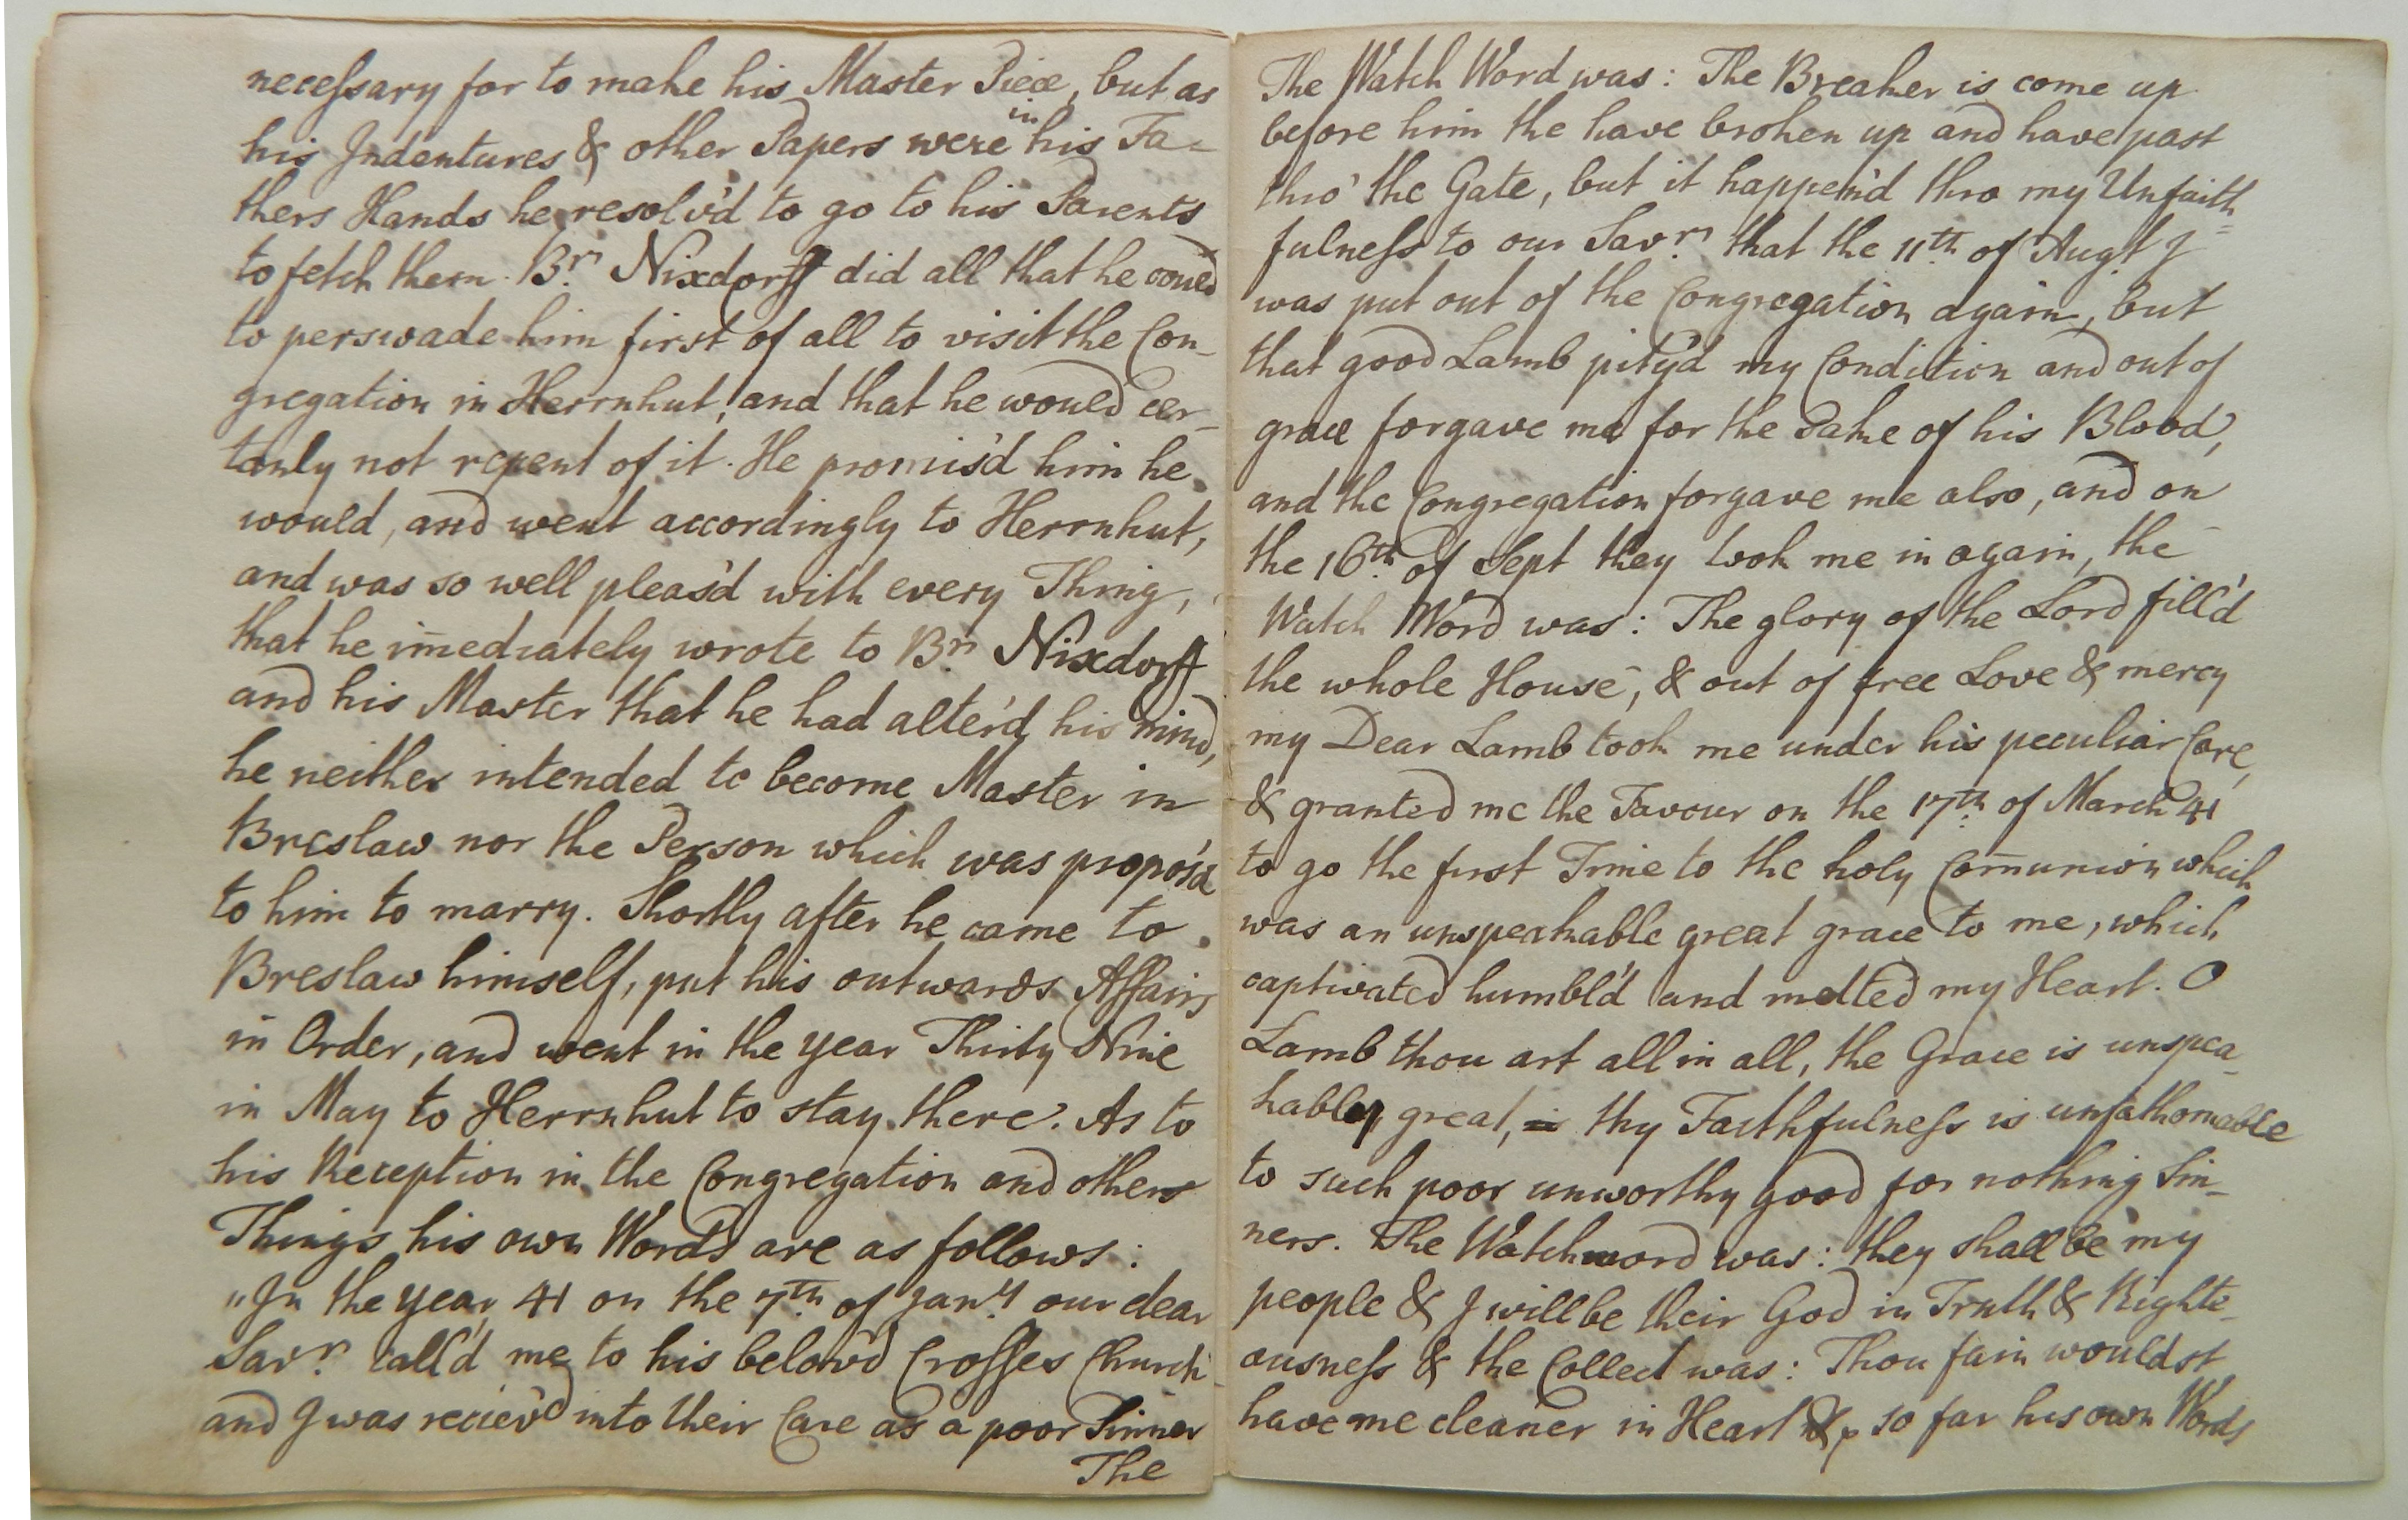 necessary for to make his Master Piece, but as
his Indentures & other Papers were in his Fa-
thers Hands he resolv'd to go to his Parents
to fetch them. Br. Nixdorff did all that he could
to perswade him first of all to visit the Con-
gregation in Herrnhut, and that he would cer-
tanly not repent of it. He promis'd him he
would, and went accordingly to Herrnhut,
and was so well pleas'd with every Thing,
that he im̄ediately wrote to Br. Nixdorff
and his Master that he had alter'd his mind,
he neither intended to become Master in
Breslaw nor the Person which was propos'd
to him to marry. Shortly after he came to
Breslaw himself, put his outwards Affairs
in Order, and went in the year Thirty Nine
in May to Herrnhut to stay there. As to
his Reception in the Congregation and others
Things his own Words are as follows:
"In the year 41 on the 7th of Jany our dear
Savr. call'd me to his belov'd Crosses Church
and I was reciev'd into their Care as a poor Sinner
The
The Watch Word was: The Breaker is come up
before him the have broken up and have past
thro' the Gate, but it happen'd thro my Unfaith=
fulness to our Savr. that the 11th of Augt. I
was put out of the Congregation again, but
that good Lamb pity'd my Condition and out of
grace forgave me for the Sake of his Blood,
and the Congregation forgave me also, and on
the 16th of Sept they took me in again, the
Watch Word was: The glory of the Lord fill'd
the whole House, & out of free Love & mercy
my Dear Lamb took me under his peculiar Care,
& granted me the Favour on the 17th of March 41
to go the first Time to the holy Com̄union which
was an unspeakable great grace to me, which
captivated humbl'd and melted my Heart. O
Lamb thou art all in all, the Grace is unspea-
kably great, thy Faithfulness is unfathomable
to such poor unworthy good for nothing Sin-
ners. The Watchword was: they shall be my
people & I will be their God in Truth & Righte-
ousness & the Collect was: Thou fain wouldst
have me cleaner in Heart &c so far his own Words